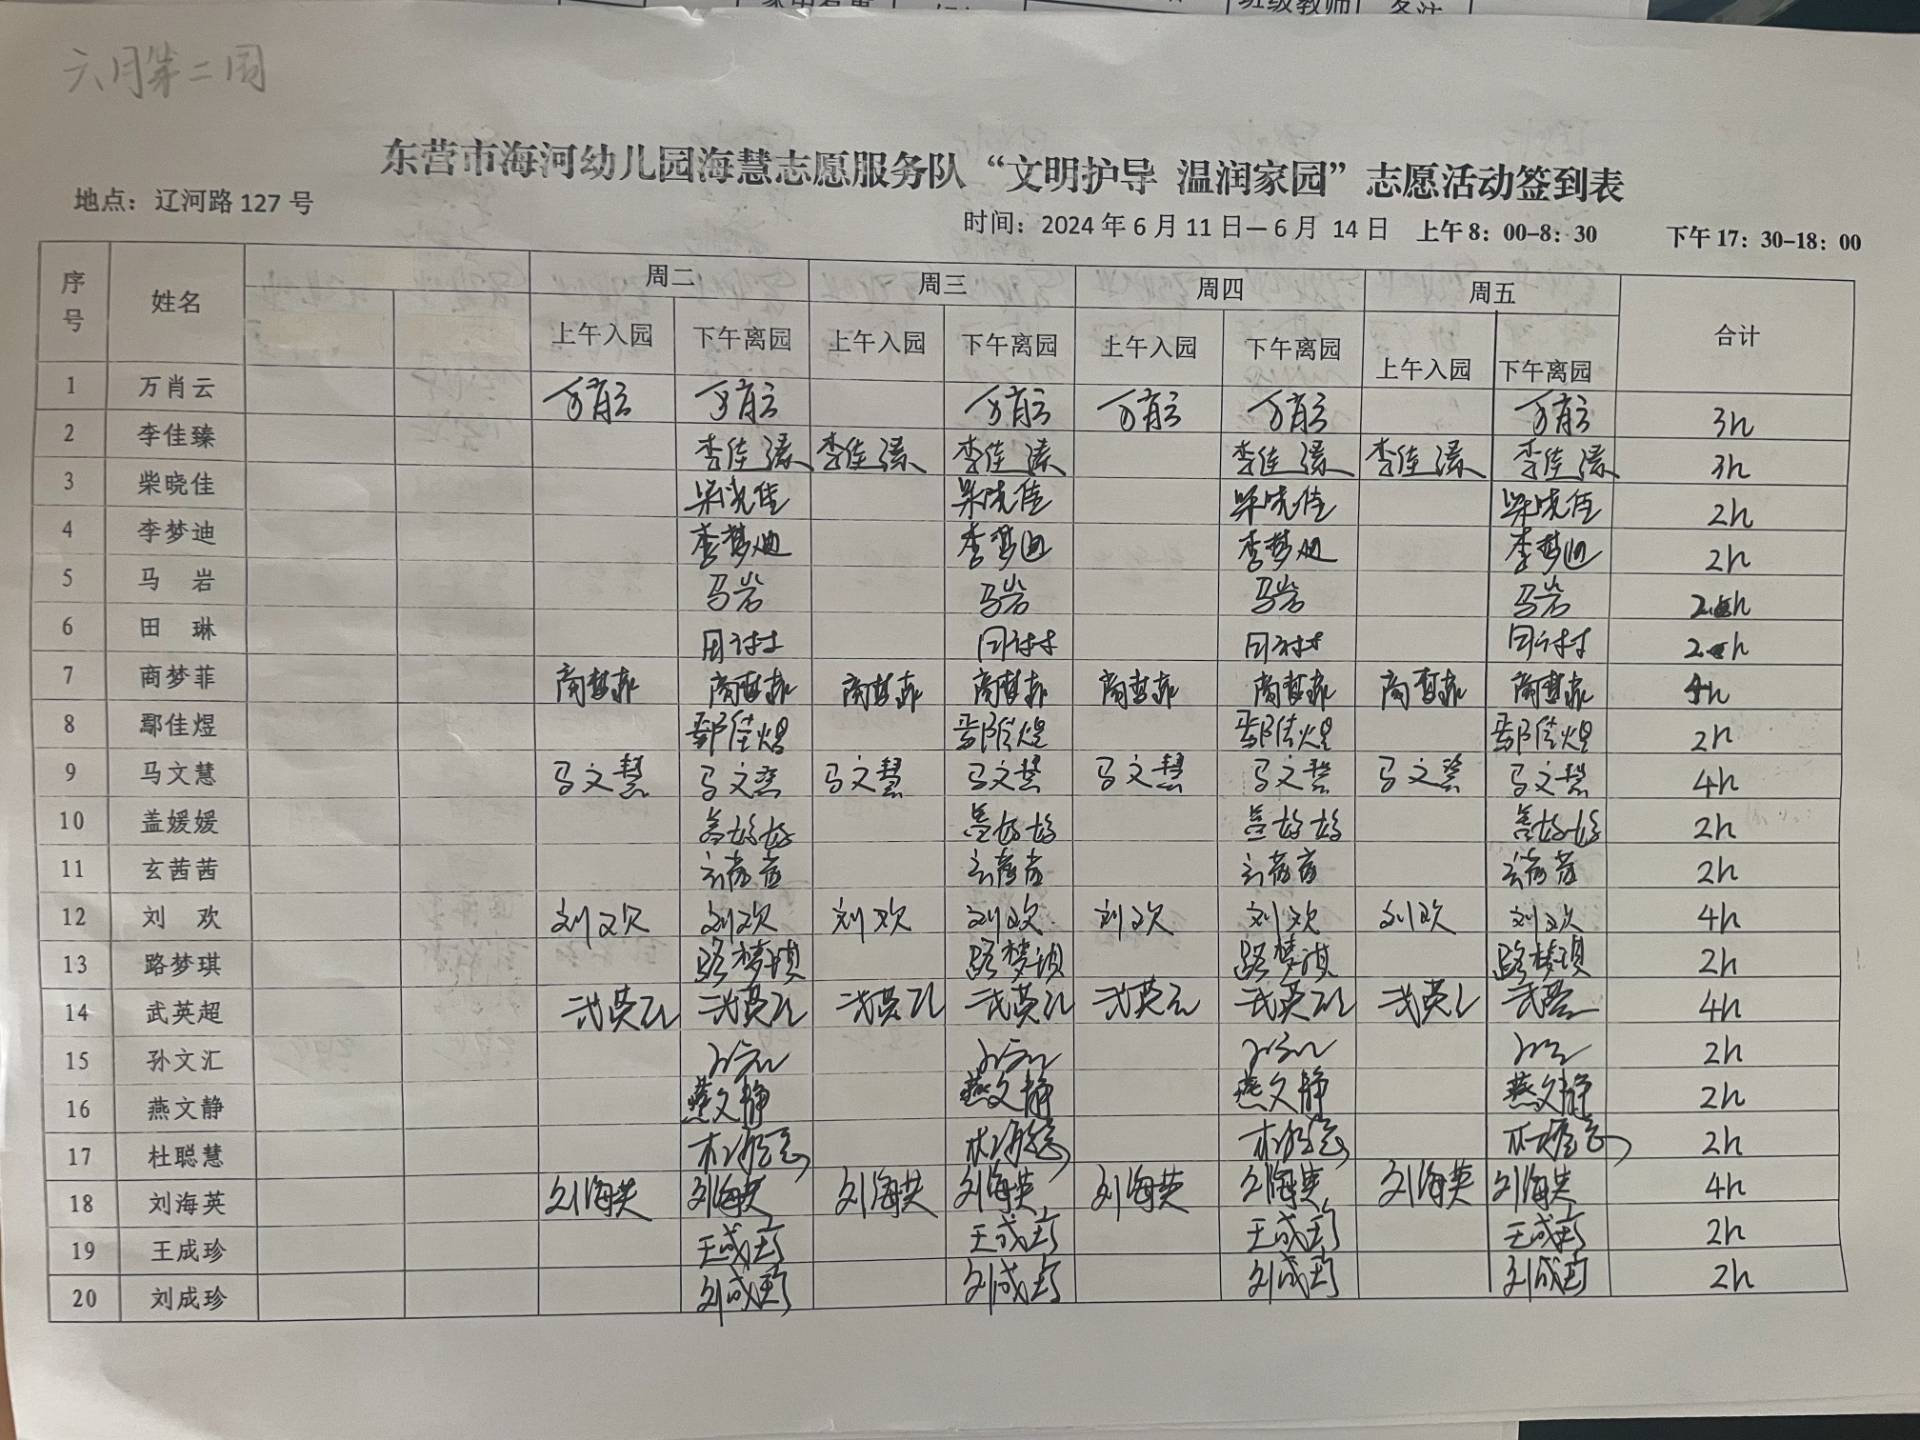 班级教师 备注
六月第二周
东营市海河幼儿园海慧志愿服务队“文明护导 温润家园”志愿活动签到表
地点：辽河路 127 号
时间：2024 年 6 月 11 日—6 月 14 日 上午 8：00-8：30 下午 17：30-18：00
序号 姓名 周二 周三 周四 周五 合计
上午入园 下午离园 上午入园 下午离园 上午入园 下午离园 上午入园 下午离园
1 万肖云 万肖云 万肖云 万肖云 万肖云 万肖云 万肖云 3h
2 李佳臻 李佳臻 李佳臻 李佳臻 李佳臻 李佳臻 李佳臻 3h
3 柴晓佳 柴晓佳 柴晓佳 柴晓佳 柴晓佳 2h
4 李梦迪 李梦迪 李梦迪 李梦迪 李梦迪 2h
5 马 岩 马岩 马岩 马岩 马岩
6 田 琳 田琳 田琳 田琳 田琳
7 商梦菲 商梦菲 商梦菲 商梦菲 商梦菲 商梦菲 商梦菲 商梦菲 商梦菲 4h
8 鄢佳煜 鄢佳煜 鄢佳煜 鄢佳煜 鄢佳煜 2h
9 马文慧 马文慧 马文慧 马文慧 马文慧 马文慧 马文慧 马文慧 马文慧 4h
10 盖媛媛 盖媛媛 盖媛媛 盖媛媛 盖媛媛 2h
11 玄茜茜 玄茜茜 玄茜茜 玄茜茜 玄茜茜 2h
12 刘 欢 刘欢 刘欢 刘欢 刘欢 刘欢 刘欢 刘欢 刘欢 4h
13 路梦琪 路梦琪 路梦琪 路梦琪 路梦琪 2h
14 武英超 武英超 武英超 武英超 武英超 武英超 武英超 武英超 武英超 4h
15 孙文汇 孙文汇 孙文汇 孙文汇 孙文汇 2h
16 燕文静 燕文静 燕文静 燕文静 燕文静 2h
17 杜聪慧 杜聪慧 杜聪慧 杜聪慧 杜聪慧 2h
18 刘海英 刘海英 刘海英 刘海英 刘海英 刘海英 刘海英 刘海英 刘海英 4h
19 王成珍 王成珍 王成珍 王成珍 王成珍 2h
20 刘成珍 刘成珍 刘成珍 刘成珍 刘成珍 2h